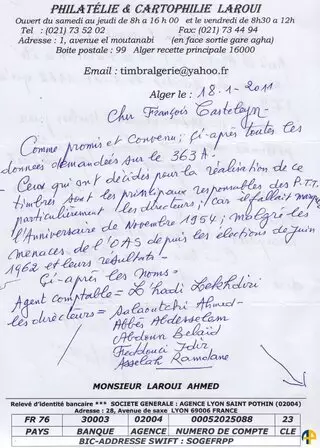 PHILATÉLIE & CARTOPHILIE LAROUI
Ouvert du samedi au jeudi de 8h a 16 h 00 et le vendredi de 8h30 a 12h
Tel : (021) 73 52 02 Fax: (021) 73 44 94
Adresse : 1, avenue el moutanabi (en face sortie gare agha)
Boite postale : 99 Alger recette principale 16000
Email : timbralgerie@yahoo.fr
Alger le : 18-1-2011
Cher François Casteleyn
Comme promis et Convenu; Çi-après toutes les
données demandées sur le 363A-
- Ceux qui ont décidés pour la réalisation de ce
timbres sont les principaux responsables des P.T.T.
particulièrement les directeurs; car il fallait marquer
l'Anniversaire de Novembre 1954; malgré les
menaces de l'OAS depuis les élections de Juin
1962 et leurs résultats-
Çi-après les noms-
Agent comptable = L'hadi Lekhdiri
les directeurs = Salaoutchi Ahmed-
Abbès Abdesselam
Abdoun Belaïd
Ferdouci Idir
Asselah Ramdane
MONSIEUR LAROUI AHMED
Relevé d'identité bancaire *** SOCIETE GENERALE : AGENCE LYON SAINT POTHIN (02004)
Adresse : 28, Avenue de saxe LYON 69006 FRANCE
FR 76 30003 02004 00052025088 23
PAYS BANQUE AGENCE NUMERO DE COMPTE CLE
BIC-ADDRESSE SWIFT : SOGEFRPP